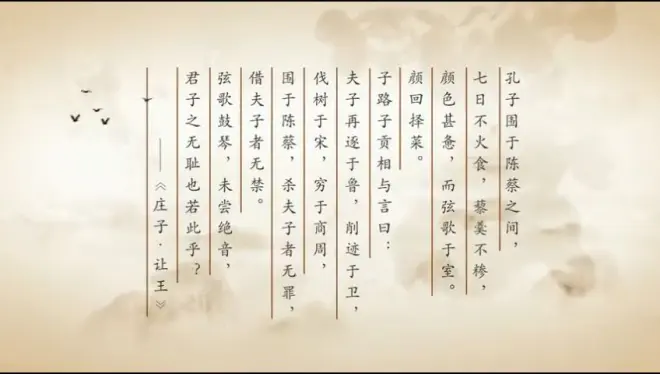 孔子围于陈蔡之间，
七日不火食，藜羹不糁，
颜色甚惫，而弦歌于室。
颜回择菜。
子路子贡相与言曰：
夫子再逐于鲁，削迹于卫，
伐树于宋，穷于商周，
围于陈蔡，杀夫子者无罪，
借夫子者无禁。
弦歌鼓琴，未尝绝音，
君子之无耻也若此乎？
——《庄子·让王》